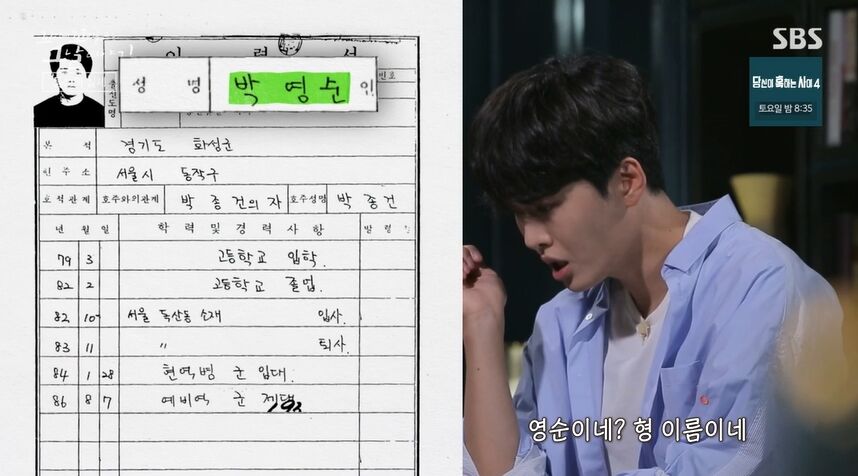 이 력 서
성 명 박 영 순 인
본 적 경기도 화성군
현 주 소 서울시 동작구
호적관계 호주와의관계 박 종 건의 자 호주성명 박 종 건
년 월 일 학 력 및 경 력 사 항 발 령
79 3 고등학교 입학.
82 2 고등학교 졸업.
82 10 서울 독산동 소재 입사.
83 11 〃 퇴사.
84 1 28 현역병 군 입대.
86 8 7 예비역 군 제대
SBS
당신이 혹하는 사이 4
토요일 밤 8:35
영순이네? 형 이름이네